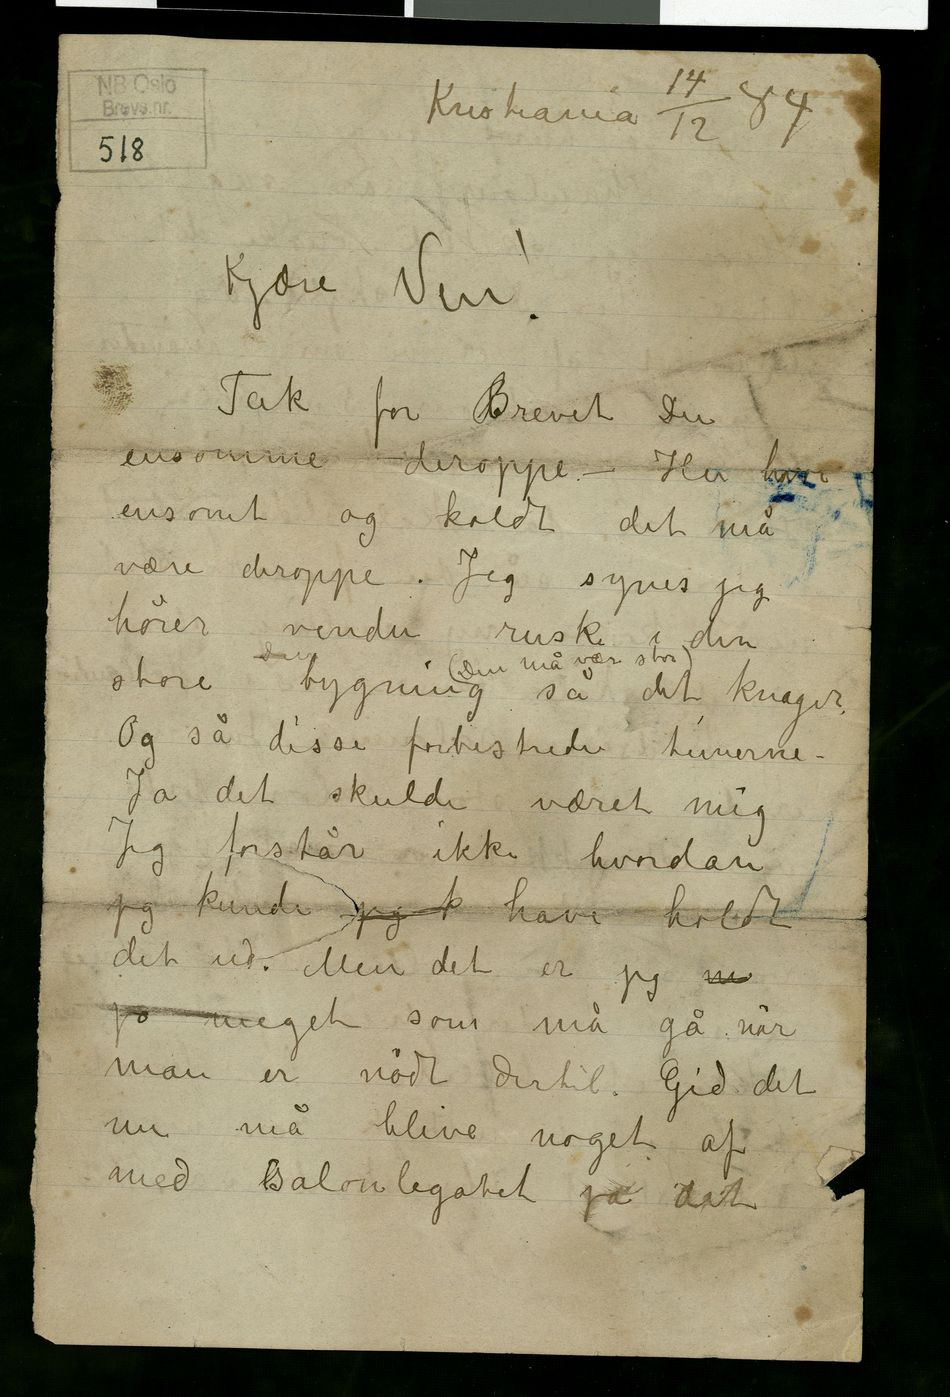 NB Oslo
Brevs.nr.
518
Kristiania 14/12 84
Kjære Ven!
Tak for Brevet Du
ensomme deroppe. – Hu hvor
ensomt og koldt det må
være deroppe. Jeg synes jeg
hører vinden ruske i den
store bygning (den må være stor) så det knager.
Og så disse forbistrede timerne –
Ja det skulde været mig
Jeg forstår ikke hvordan
jeg kunde jeg k have holdt
det ud. Men det er jeg m
jo meget som må gå når
man er nödt dertil. Gid det
nu må blive noget af
med Salonlegatet ja det